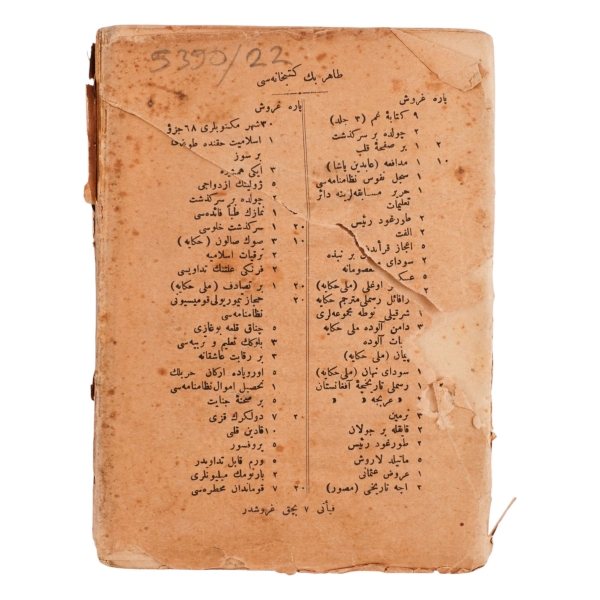 5390/22
طاهر بك كتبخانه‌سی
پاره غروش
۹ كتابهٔ غم (۳ جلد)
۲ چولده بر سرگذشت
۱ ۲ بر صفحهٔ قلب
۱ ۱۰ مدافعه (عابدین پاشا)
۱ سجل نفوس نظامنامه‌سی
۱ حریر مسابقه‌لرینه دائر
تعلیمات
۲ طورغود رئیس
۲ الفت
۵ اعجاز قرآندن
۲ سودای بر نبذه
معصومانه
۵ عسكر
۲ اوغلی (ملی حكایه)
۱ رافائل رسملی مترجم حكایه
۱ شرقیلی نوطه مجموعه‌لری
۳ دامن آلوده ملی حكایه
۱ بات آلوده
پیمان (ملی حكایه)
۵ سودای نهان (ملی حكایه)
رسملی تاریخچهٔ افغانستان
» عربجه » »
۳ نرمین
۲ قافله بر جولان
۲ طورغود رئیس
۵ ماتیلد لاروش
۱ عروض عثمانی
۲ اچه تاریخی (مصور)
پاره غروش
۳۰ شهر مكتوبلری ۶۸ جزؤ
۱ اسلامیت حقنده طوبقه‌ها
بر سوز
۳ ایكی همشیره
۵ ژولینك ازدواجی
۲ چولده بر سرگذشت
۱ نمازك طباً فائده‌سی
۲۰ ۱ سرگذشت خلوصی
۱۰ ۳ صوك صالون (حكایه)
۲ ترقیات اسلامیه
۲ فرنكی علتنك تداویسی
۲۰ ۱ بر تصادف (ملی حكایه)
۲۰ حجاز تیموریولی قومیسیونی
نظامنامه‌سی
۵ چناق قلعه بوغازی
۳ بلوكك تعلیم و تربیه‌سی
۳ بر رقابت عاشقانه
۵ اوروپاده اركان حربلك
۱ تحصیل اموال نظامنامه‌سی
۵ بر صحنهٔ جنایت
۲۰ ۷ دولكرك قزی
۱۰ قادین قلبی
۵ پروفسور
۵ ورم قابل تداویدر
۲ بارنومك میلیونلری
۲۰ ۷ قوماندان محطره‌سی
فیأتی ۷ بچق غروشدر